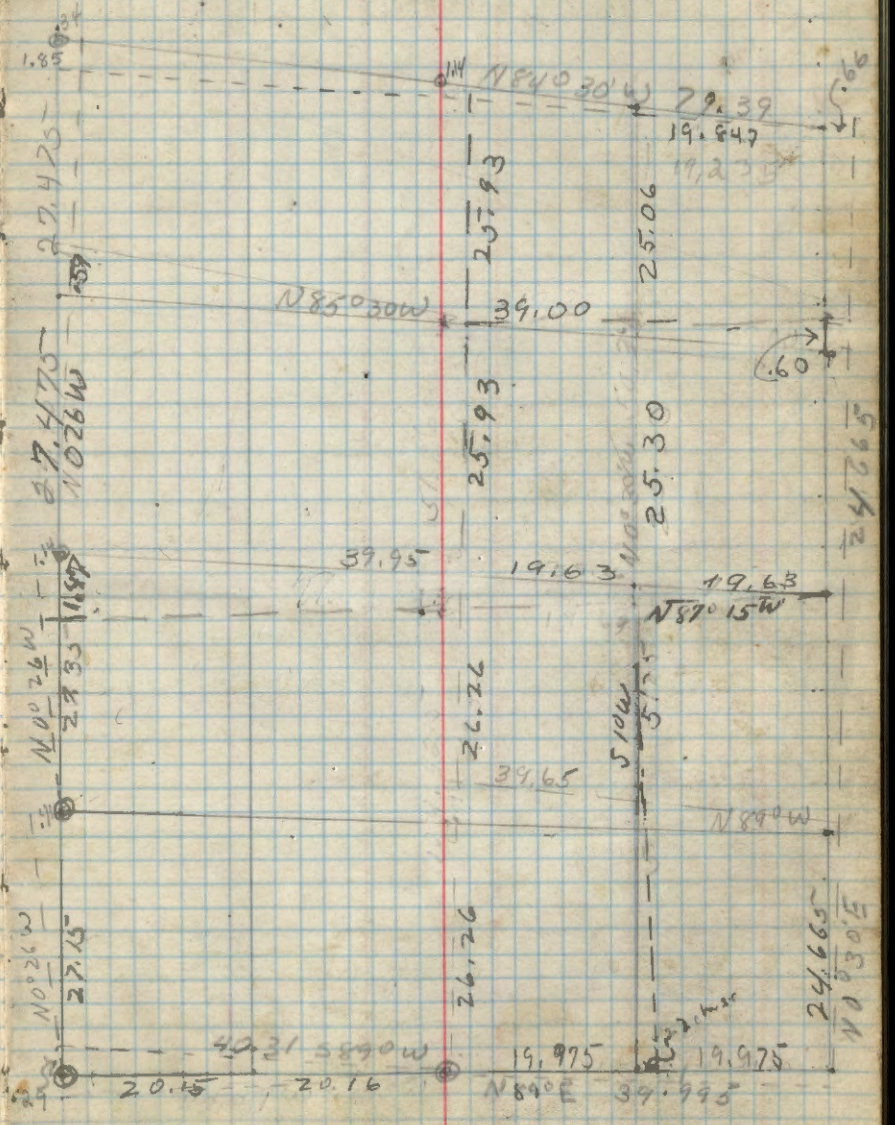 1.85
1.14
N84° 30' W
79.39
.66
19.847
27.475
25.93
25.06
.59
N85° 30W
39.00
.60
27.475
N026W
25.93
25.30
24.665
39.95
19.63
19.63
N87° 15W
1.87
N0° 26W
27.35
26.26
S10W
39.65
N89° W
N0° 26W
27.15
26.26
24.665
N0° 30'E
40.31 S89° W
19.975
19.975
20.15
20.16
N89° E
39.995